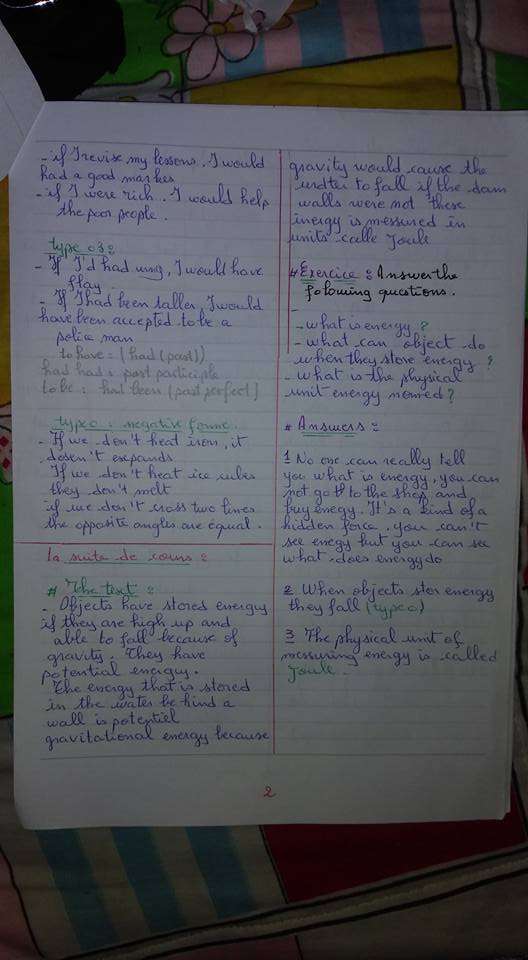 - if I revise my lessons, I would
had a good markes
- if I were rich. I would help
the poor people.
type 03:
- If I'd had wing, I would have
flay.
- If I had been taller, I would
have been accepted to be a
police man
to have: (had (past))
had had: past participle
to be: had been (past perfect)
type 0: negative forme.
- If we don't heat iron, it
dosen't expands
If we don't heat ice cubes
they don't melt
if we don't cross two lines
the opposite angles are equal.
la suite de cours:
# The text:
- Objects have stored energy
if they are high up and
able to fall because of
gravity. They have
potential energy.
The energy that is stored
in the water be hind a
wall is potentiel
gravitational energy because
gravity would cause the
water to fall if the dam
walls were not these
inergy is messured in
units calle Joule
# Exercice: Answer the
following questions.
- what is energy?
- what can object do
when they store energy?
- What is the physical
unit energy nomed?
# Answers:
1 No one can really tell
you what is energy, you can
not go to the shop and
buy energy. It's a kind of a
hidden force. you can't
see enegy but you can see
what does energy do
2 When objects stor energy
they fall (type 0)
3 The physical unit of
messuring energy is called
Joule.
2